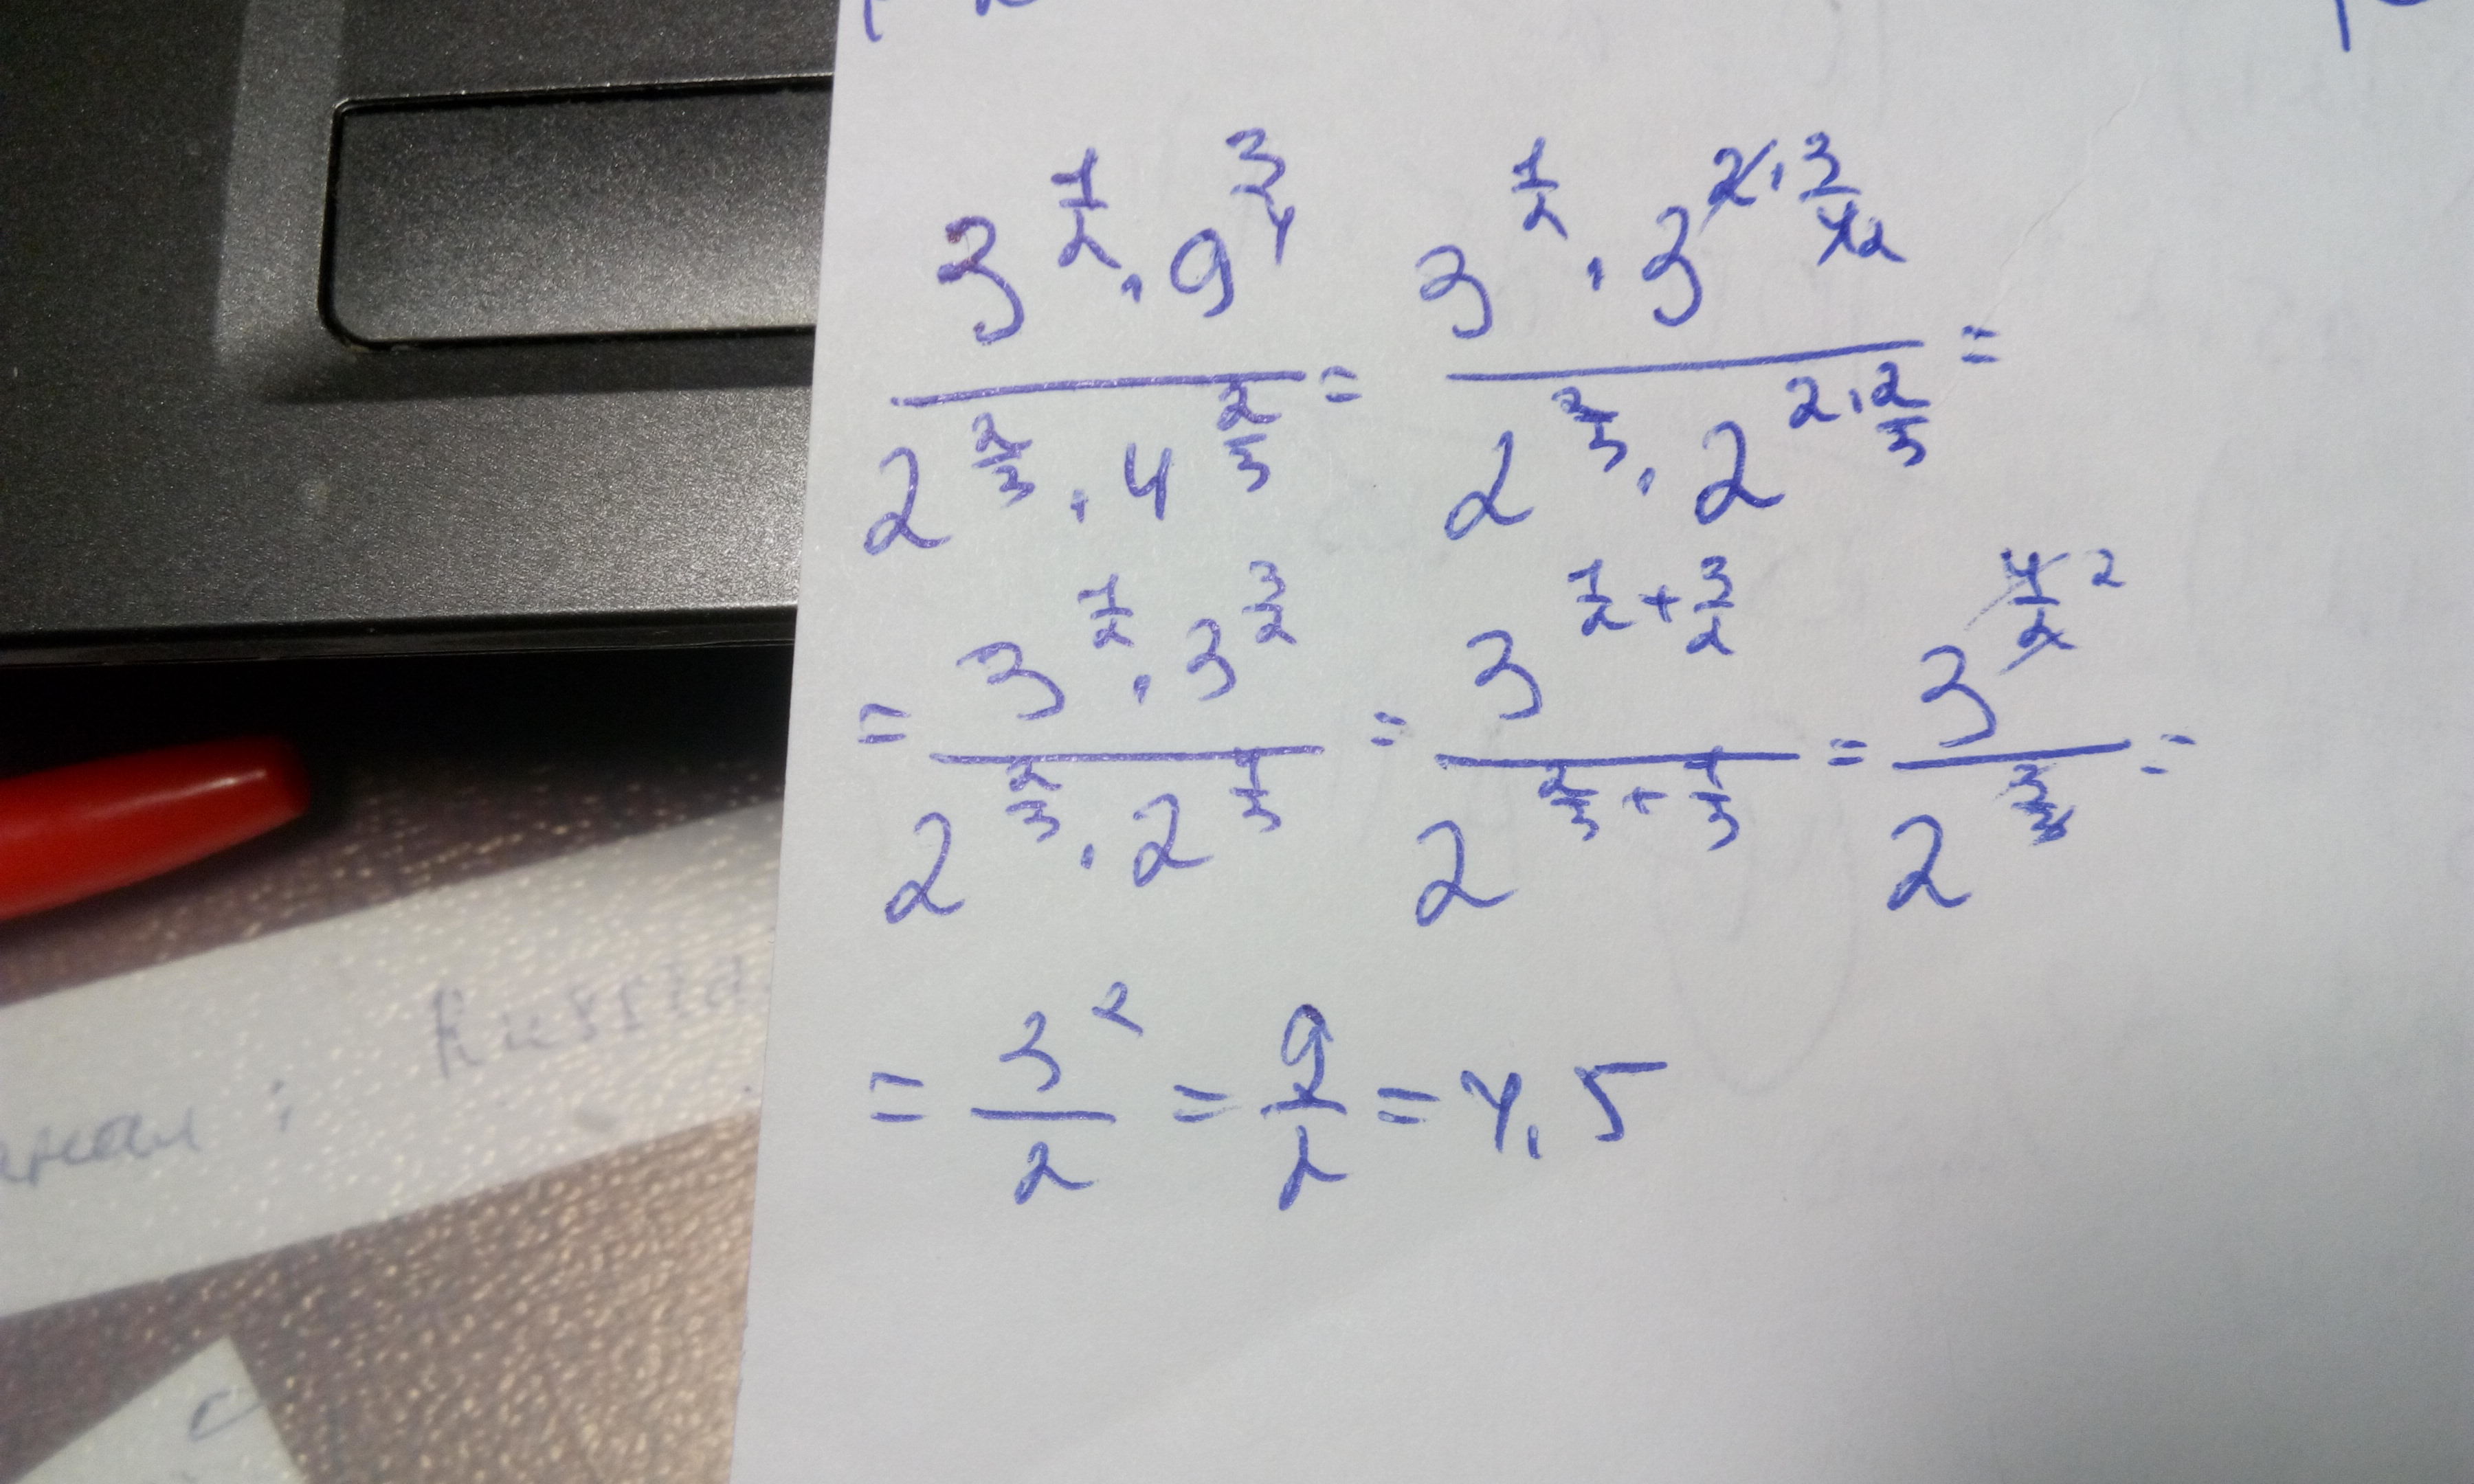 3^(1/2) · 9^(3/4) / 2^(2/3) · 4^(2/3) = 3^(1/2) · 3^(2·3/4 2) / 2^(2/3) · 2^(2·2/3) =
= 3^(1/2) · 3^(3/2) / 2^(2/3) · 2^(1/3) = 3^(1/2+3/2) / 2^(2/3+1/3) = 3^(4/2 2) / 2^(3/3) =
= 3^2 / 2 = 9/2 = 4,5
Russia